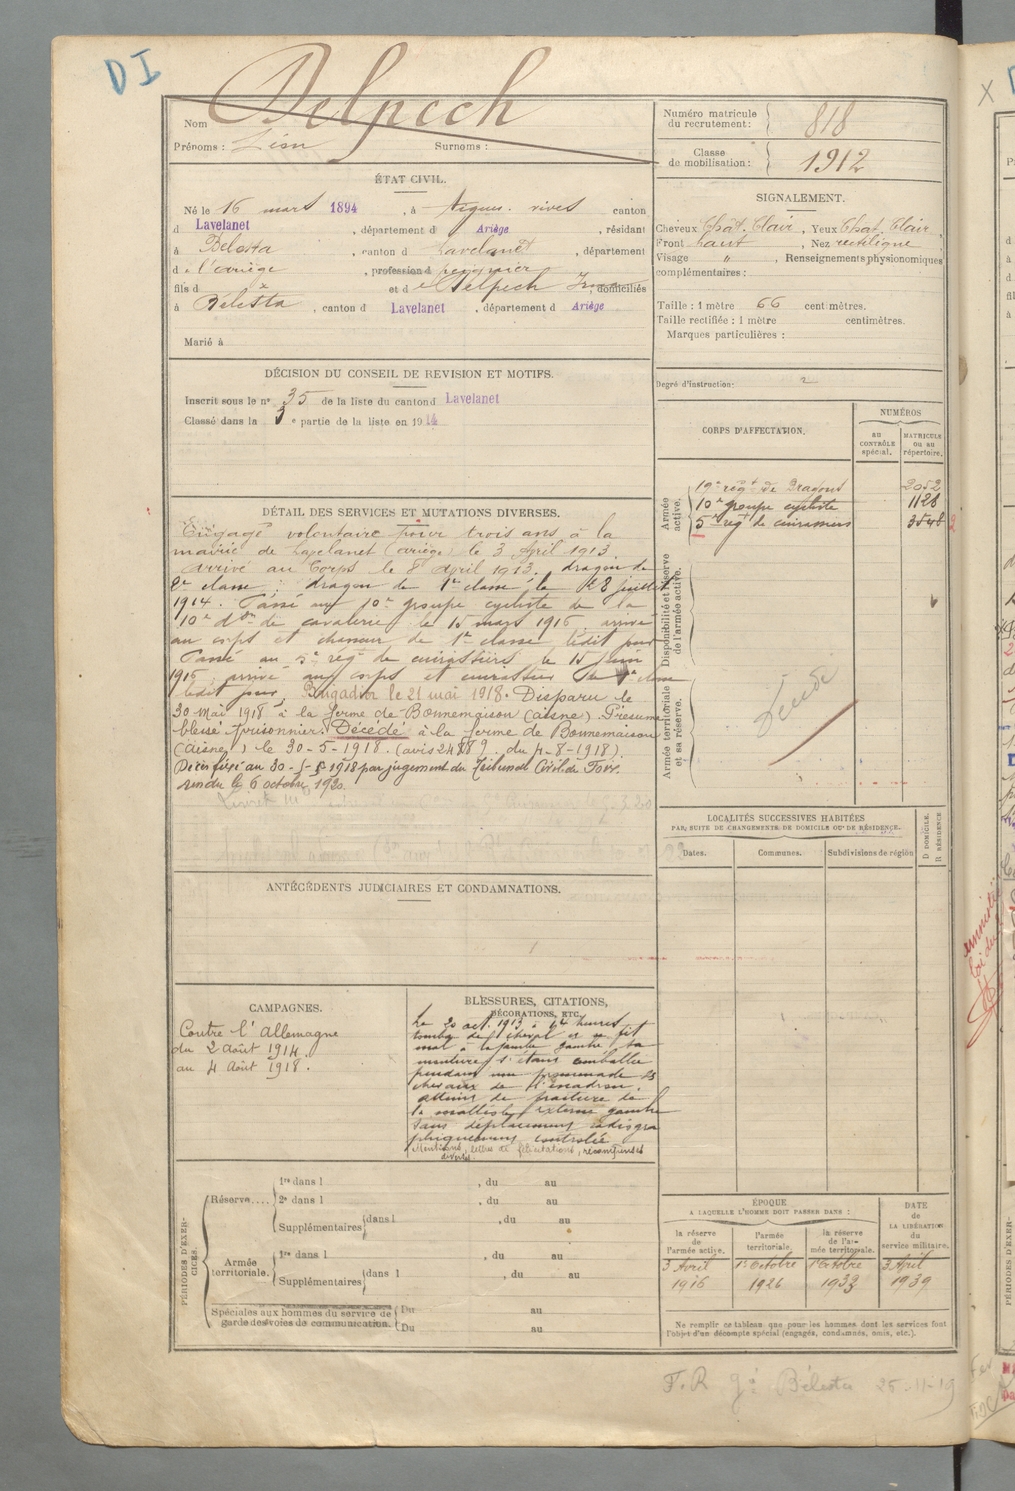 DI
Nom Delpech
Prénoms : Léon Surnoms :
Numéro matricule
du recrutement : 818
Classe
de mobilisation : 1912
ÉTAT CIVIL.
Né le 16 mars 1894, à Aigues-vives canton
d Lavelanet, département d Ariège, résidant
à Belesta, canton d Lavelanet, département
d e l'ariège, profession d peignier
fils d et d e Delpech, domiciliés
à Bélesta, canton d Lavelanet, département d Ariège
Marié à
SIGNALEMENT.
Cheveux Chât. Clair, Yeux Chat. Clair,
Front haut, Nez rectiligne
Visage " , Renseignements physionomiques
complémentaires :
Taille : 1 mètre 66 centimètres.
Taille rectifiée : 1 mètre centimètres.
Marques particulières :
Degré d'instruction : 2
DÉCISION DU CONSEIL DE REVISION ET MOTIFS.
Inscrit sous le n° 35 de la liste du canton d Lavelanet
Classé dans la 3 e partie de la liste en 1914
CORPS D'AFFECTATION.
NUMÉROS
au CONTRÔLE spécial.
MATRICULE ou au répertoire.
Armée active.
19e régt de Dragons 2052
10e groupe cycliste 1128
5e régt de cuirassiers 3548
Disponibilité et réserve de l'armée active.
Armée territoriale et sa réserve.
Décédé
DÉTAIL DES SERVICES ET MUTATIONS DIVERSES.
Engagé volontaire pour trois ans à la
mairie de Lavelanet (ariège) le 3 April 1913.
arrivé au Corps le 8 April 1913. dragon de
2e classe ; dragon de 1e classe le 28 juillet
1914. Passé au 10e groupe cycliste de la
10e don de cavalerie le 15 mars 1916 arrivé
au corps et chasseur de 1e classe ledit jour
Passé au 5e régt de cuirassiers le 15 juin
1916, arrivé au corps et cuirassier de 1e classe
ledit jour, Brigadier le 21 mai 1918. Disparu le
30 Mai 1918 à la ferme de Bonnemaison (aisne). Présumé
blessé prisonnier. Décédé à la ferme de Bonnemaison
(aisne) le 30-5-1918. (avis 24889 du 4-8-1918)
Décès fixé au 30-5-1918 par jugement du Tribunal Civil de Foix.
rendu le 6 octobre 1920.
LOCALITÉS SUCCESSIVES HABITÉES
PAR SUITE DE CHANGEMENTS DE DOMICILE OU DE RÉSIDENCE.
Dates. Communes. Subdivisions de région
D DOMICILE.
R RÉSIDENCE
ANTÉCÉDENTS JUDICIAIRES ET CONDAMNATIONS.
CAMPAGNES.
Contre l'Allemagne
du 2 Août 1914.
au 4 Août 1918.
BLESSURES, CITATIONS,
DÉCORATIONS, ETC.
Le 20 oct. 1913 à 14 heures
tomba de cheval et se fit
mal à la jambe gauche, sa
monture s'étant emballée
pendant une promenade des
chevaux de l'Escadron.
atteint de fracture de
la malléole externe gauche
sans déplacement radiogra
phiquement contrôlée
Mentions, lettres de félicitations, récompenses
diverses.
PÉRIODES D'EXERCICES.
Réserve....
1re dans l , du au
2e dans l , du au
Supplémentaires dans l , du au
Armée territoriale.
1re dans l , du au
Supplémentaires dans l , du au
Spéciales aux hommes du service de
garde des voies de communication.
Du au
Du au
ÉPOQUE
A LAQUELLE L'HOMME DOIT PASSER DANS :
la réserve de l'armée active.
l'armée territoriale.
la réserve de l'armée territoriale.
DATE de LA LIBÉRATION du service militaire.
3 Avril 1er Octobre 1er Octobre 3 April
1916 1926 1933 1939
Ne remplir ce tableau que pour les hommes dont les services font
l'objet d'un décompte spécial (engagés, condamnés, omis, etc.).
F.R Gie Bélesta 25-11-19